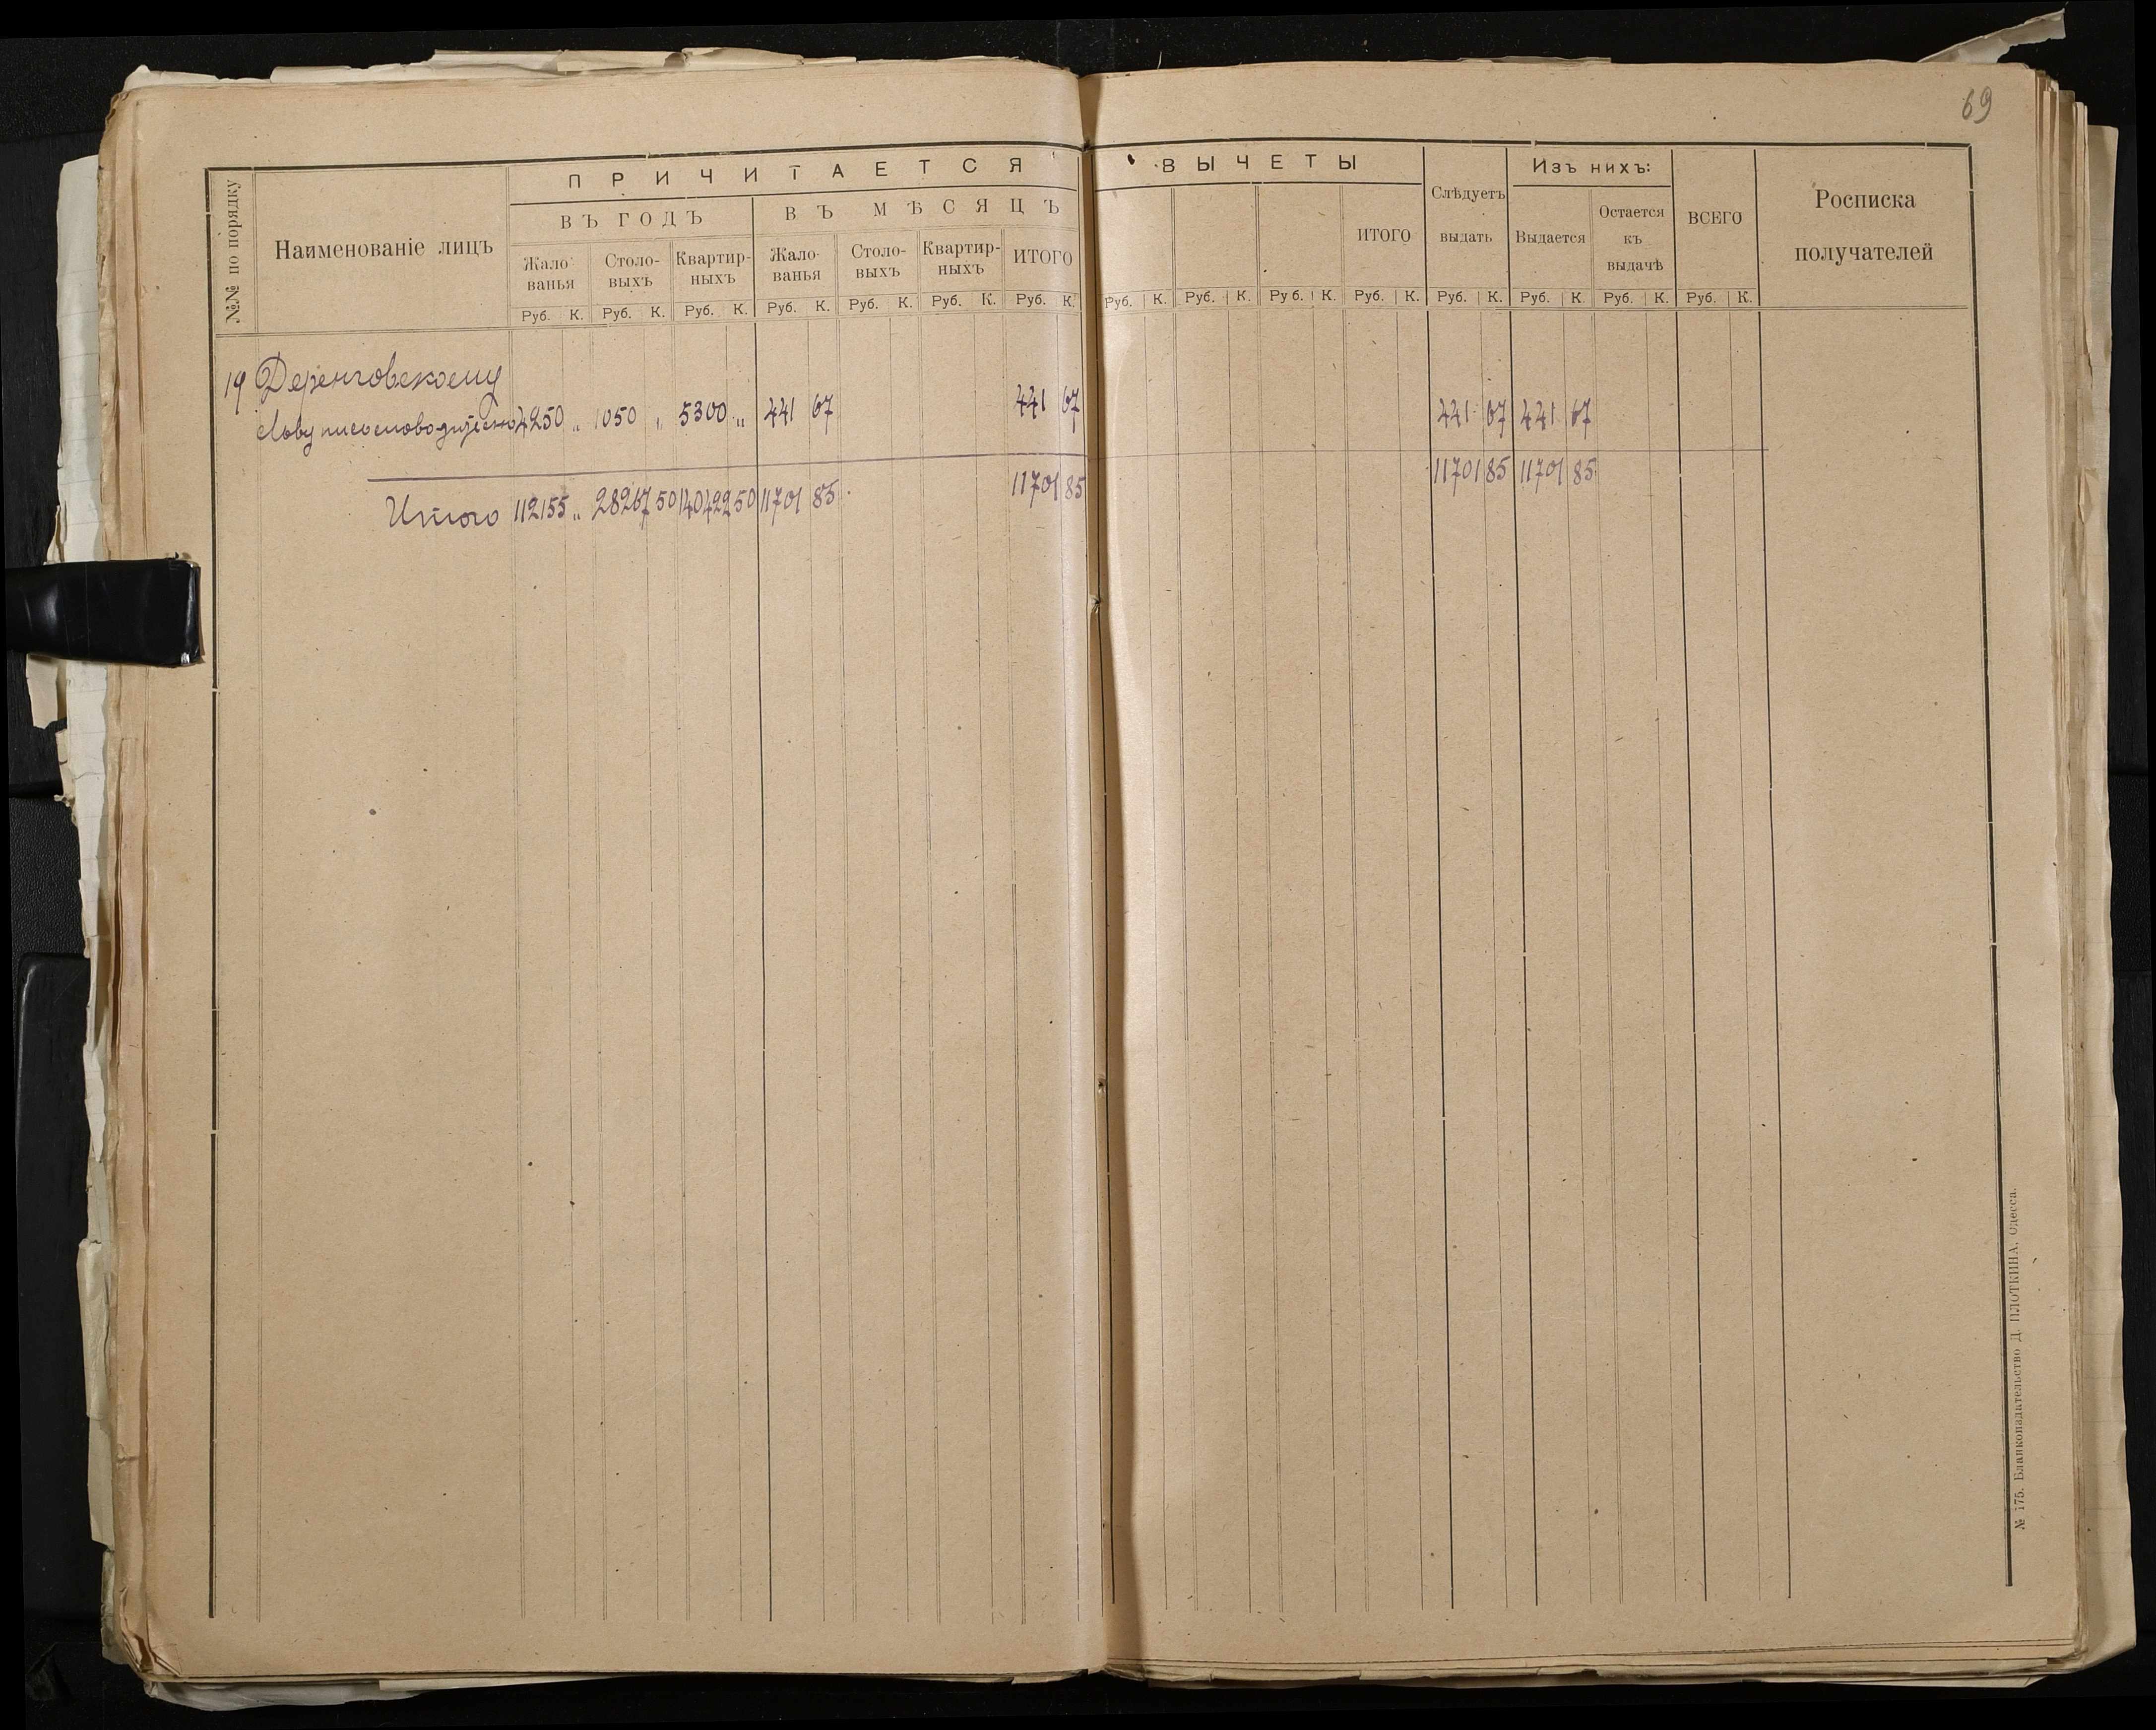 69
ПРИЧИТАЕТСЯ
ВЪ ГОДЪ
ВЪ МѢСЯЦЪ
№№ по порядку
Наименованіе лицъ
Жало-
ванья
Столо-
выхъ
Квартир-
ныхъ
Жало-
ванья
Столо-
выхъ
Квартир-
ныхъ
ИТОГО
Руб. К. Руб. К. Руб. К. Руб. К. Руб. К. Руб. К. Руб. К.
ВЫЧЕТЫ
ИТОГО
Слѣдуетъ
выдать
Изъ нихъ:
Выдается
Остается
къ
выдачѣ
ВСЕГО
Росписка
получателей
Руб. К. Руб. К. Руб. К. Руб. К. Руб. К. Руб. К. Руб. К. Руб. К.
19 Деренговскому
4250 „ 1050 „ 5300 „ 441 67 441 67 441 67 441 67
Итого 112155 „ 28267 50 140422 50 11701 85 11701 85 11701 85 11701 85
№ 175. Бланкоиздательство Д. ПЛОТКИНА, Одесса.